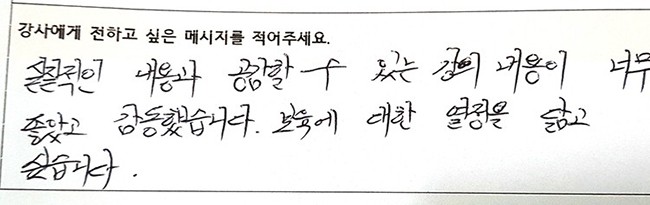 강사에게 전하고 싶은 메시지를 적어주세요.
실질적인 내용과 공감할 수 있는 강의 내용이 너무
좋았고 감동했습니다. 보육에 대한 열정을 닮고
싶습니다.